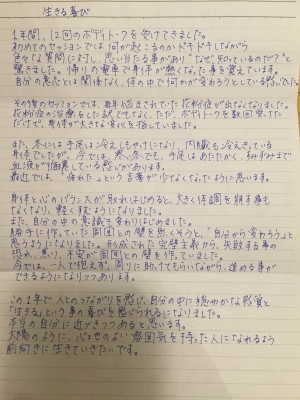 生きる喜び
1年間、12回のボディトークを受けてきました。
初めてのセッションでは何が起こるのかドキドキしながら
色々な質問に対し、思い当たる事があり"なぜ知っているのだ?"と
驚きました。帰りの電車で身体が熱くなった事を覚えています。
自分の意志とは関係なく、体の中で何かが変わろうとしている感じでした。
その後のセッションでは、毎年悩まされていた花粉症が出なくなりました。
花粉症の治療をした訳でもなく、ただ、ボディトークを数回受けた
だけで、身体が大きな変化を指していました。
また、冬には手足は冷えしもやけになり、内臓も冷えきっている
身体でしたが、今では、寒い冬でも、手足はあたたかく、すみずみまで
血液が循環している感じがあります。
最近では、"疲れた"という言葉が少なくなったように思います。
身体と心のバランスが取れはじめると、大きく体調を崩す事も
なくなり、軽くすむようになりました。
また、自分の中の意識も変わりはじめました。
勝手に作っていた周囲との壁を無くそうと、"自分から変わろう"と
思うようになりました。形成された完璧主義から、失敗する事の
恐れ、焦り、不安が周囲との壁を作っていました。
今では、一人で抱えず、周りに助けてもらいながら、進める事が
できるようになりつつあります。
この1年で人とのつながりを感じ、自分の中に穏やかな感覚と
"生きる"という事の喜びを感じられるようになりました。
本当の自分に近づきつつあると思います。
太陽のように、心地のよい雰囲気を持った人になれるよう
前向きに生きていきたいです。